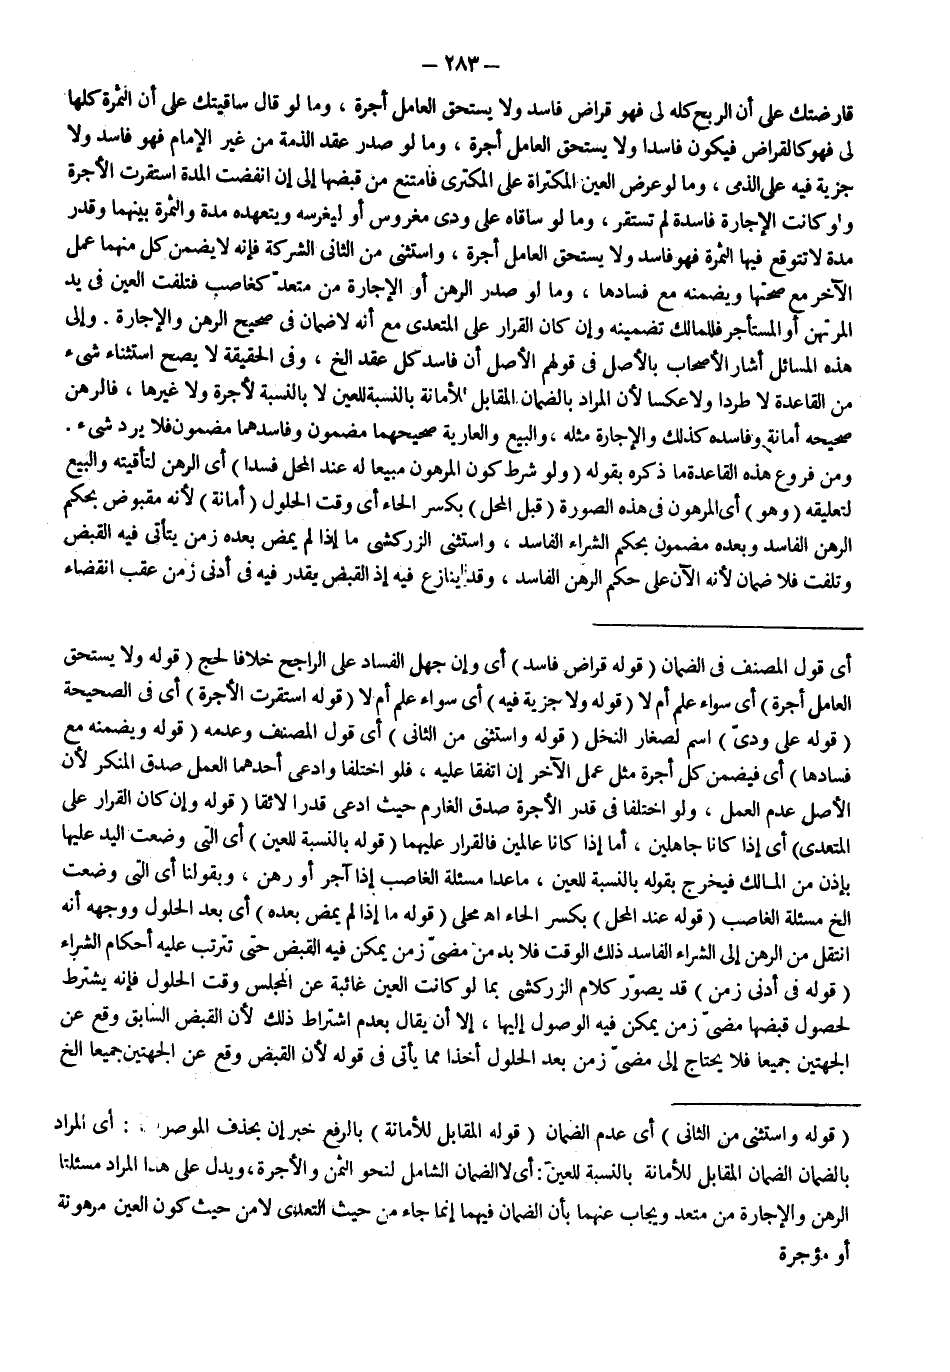 – ٢٨٣ –
قارضتك على أن الربح كله لى فهو قراض فاسد ولا يستحق العامل أجرة ، وما لو قال ساقيتك على أن الثمرة كلها
لى فهو كالقراض فيكون فاسدا ولا يستحق العامل أجرة ، وما لو صدر عقد الذمة من غير الإمام فهو فاسد ولا
جزية فيه على الذمى ، وما لو عرض العين المكتراة على المكترى فامتنع من قبضها إلى إن انقضت المدة استقرت الأجرة
ولو كانت الإجارة فاسدة لم تستقر ، وما لو ساقاه على ودى مغروس أو ليغرسه ويتعهده مدة والثمرة بينهما وقدر
مدة لاتتوقع فيها الثمرة فهو فاسد ولا يستحق العامل أجرة ، واستثنى من الثانى الشركة فإنه لا يضمن كل منهما عمل
الآخر مع صحتها ويضمنه مع فسادها ، وما لو صدر الرهن أو الإجارة من متعدّ كغاصب فتلفت العين فى يد
المرتهن أو المستأجر فللمالك تضمينه وإن كان القرار على المتعدى مع أنه لاضمان فى صحيح الرهن والإجارة . وإلى
هذه المسائل أشار الأصحاب بالأصل فى قولهم الأصل أن فاسد كل عقد الخ ، وفى الحقيقة لا يصح استثناء شىء
من القاعدة لا طردا ولا عكسا لأن المراد بالضمان المقابل للأمانة بالنسبة للعين لا بالنسبة لأجرة ولا غيرها ، فالرهن
صحيحه أمانة وفاسده كذلك والإجارة مثله ، والبيع والعارية صحيحهما مضمون وفاسدهما مضمون فلا يرد شىء .
ومن فروع هذه القاعدة ما ذكره بقوله ( ولو شرط كون المرهون مبيعا له عند المحل فسدا ) أى الرهن لتأقيته والبيع
لتعليقه ( وهو ) أى المرهون فى هذه الصورة ( قبل المحل ) بكسر الحاء أى وقت الحلول ( أمانة ) لأنه مقبوض بحكم
الرهن الفاسد وبعده مضمون بحكم الشراء الفاسد ، واستثنى الزركشى ما إذا لم يمض بعده زمن يتأتى فيه القبض
وتلفت فلا ضمان لأنه الآن على حكم الرهن الفاسد ، وقد ينازع فيه إذ القبض يقدر فيه فى أدنى زمن عقب انقضاء
أى قول المصنف فى الضمان ( قوله قراض فاسد ) أى وإن جهل الفساد على الراجح خلافا لحج ( قوله ولا يستحق
العامل أجرة ) أى سواء علم أم لا ( قوله ولا جزية فيه ) أى سواء علم أم لا ( قوله استقرت الأجرة ) أى فى الصحيحة
( قوله على ودىّ ) اسم لصغار النخل ( قوله واستثنى من الثانى ) أى قول المصنف وعدمه ( قوله ويضمنه مع
فسادها ) أى فيضمن كل أجرة مثل عمل الآخر إن اتفقا عليه ، فلو اختلفا وادعى أحدهما العمل صدق المنكر لأن
الأصل عدم العمل ، ولو اختلفا فى قدر الأجرة صدق الغارم حيث ادعى قدرا لائقا ( قوله وإن كان القرار على
المتعدى) أى إذا كانا جاهلين ، أما إذا كانا عالمين فالقرار عليهما ( قوله بالنسبة للعين ) أى التى وضعت اليد عليها
بإذن من المالك فيخرج بقوله بالنسبة للعين ، ماعدا مسئلة الغاصب إذا آجر أو رهن ، وبقولنا أى التى وضعت
الخ مسئلة الغاصب ( قوله عند المحل ) بكسر الحاء اه محلى ( قوله ما إذا لم يمض بعده ) أى بعد الحلول ووجهه أنه
انتقل من الرهن إلى الشراء الفاسد ذلك الوقت فلا بد من مضىّ زمن يمكن فيه القبض حتى تترتب عليه أحكام الشراء
( قوله فى أدنى زمن ) قد يصوّر كلام الزركشى بما لو كانت العين غائبة عن المجلس وقت الحلول فإنه يشترط
لحصول قبضها مضىّ زمن يمكن فيه الوصول إليها ، إلا أن يقال بعدم اشتراط ذلك لأن القبض السابق وقع عن
الجهتين جميعا فلا يحتاج إلى مضىّ زمن بعد الحلول أخذا مما يأتى فى قوله لأن القبض وقع عن الجهتين جميعا الخ
( قوله واستثنى من الثانى ) أى عدم الضمان ( قوله المقابل للأمانة ) بالرفع خبر إن بحذف الموصو : أى المراد
بالضمان الضمان المقابل للأمانة بالنسبة للعين : أى لا الضمان الشامل لنحو الثمن والأجرة ، ويدل على هذا المراد مسئلتا
الرهن والإجارة من متعد ويجاب عنهما بأن الضمان فيهما إنما جاء من حيث التعدى لا من حيث كون العين مرهونة
أو مؤجرة